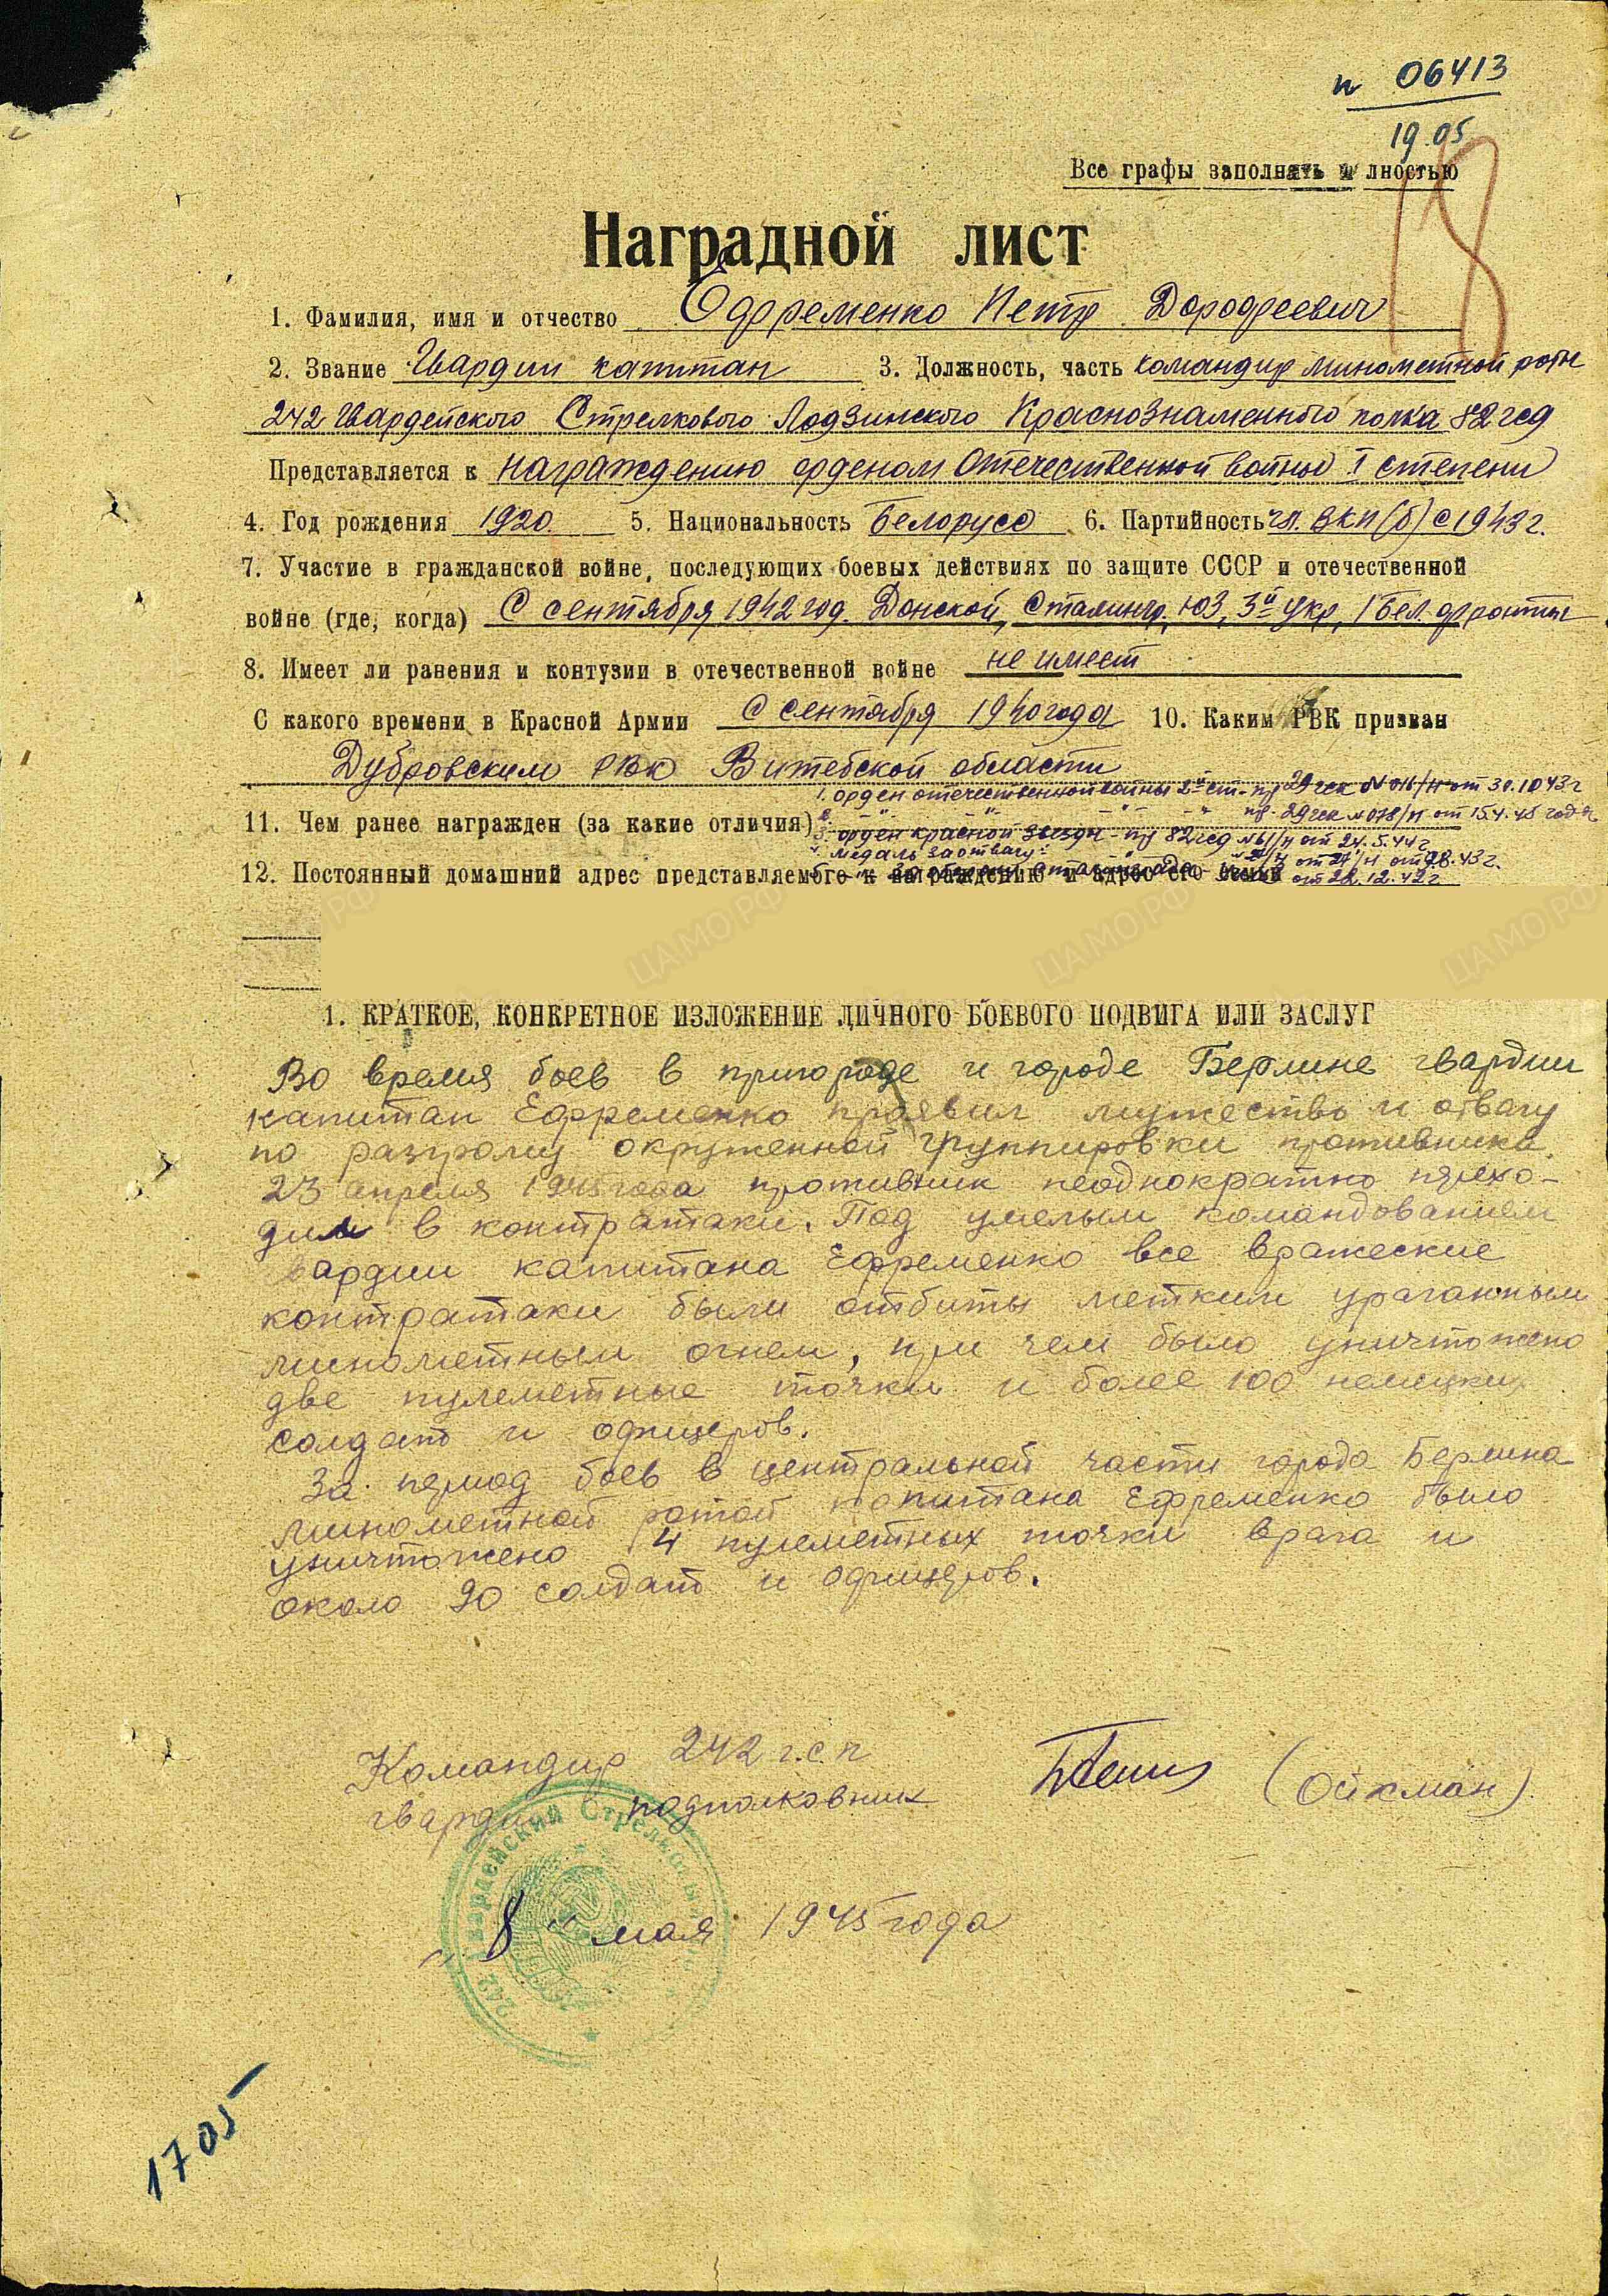 п 06413
19.05
18
Все графы заполнять лностью
Наградной лист
1. Фамилия, имя и отчество Ефременко Петр Дорофеевич
2. Звание Гвардии капитан 3. Должность, часть командир минометной роты
242 Гвардейского Стрелкового Лодзинского Краснознаменного полка 82 гсд
Представляется к награждению орденом Отечественной войны I степени
4. Год рождения 1920 5. Национальность Белорусс 6. Партийность чл. ВКП(б) с 1943 г.
7. Участие в гражданской войне, последующих боевых действиях по защите СССР и отечественной
войне (где, когда) С сентября 1942 год. Донской, Сталингр, ЮЗ, 3й Укр, 1 Бел. фронты
8. Имеет ли ранения и контузии в отечественной войне не имеет
С какого времени в Красной Армии С сентября 1940 года 10. Каким РВК призван
Дубровским РВК Витебской области
1. орден отечественной войны 2й ст. - пр 29 гск №016/н от 30.10 43 г
2. -"- -"- -"- -"- пр. 29 гск №078/н от 15.4.45 года
11. Чем ранее награжден (за какие отличия)
3. орден красной звезды - пр 82 гсд №61/н от 24.5.44 г
4. медаль за отвагу
12. Постоянный домашний адрес представляемого к награждению и адрес его семьи
от 22.12.42 г
1. КРАТКОЕ, КОНКРЕТНОЕ ИЗЛОЖЕНИЕ ЛИЧНОГО БОЕВОГО ПОДВИГА ИЛИ ЗАСЛУГ
Во время боев в пригороде и городе Берлине гвардии
капитан Ефременко проявил мужество и отвагу
по разгрому окруженной группировки противника.
23 апреля 1945 года противник неоднократно перехо-
дил в контратаки. Под умелым командованием
гвардии капитана Ефременко все вражеские
контратаки были отбиты метким ураганным
минометным огнем, при чем было уничтожено
две пулеметные точки и более 100 немецких
солдат и офицеров.
За период боев в центральной части города Берлина
минометной ротой капитана Ефременко было
уничтожено 4 пулеметных точки врага и
около 90 солдат и офицеров.
Командир 242 г.с.п
гвардии подполковник (Ойхман)
242 Гвардейский Стрелковый
"8" мая 1945 года
1705
ЦАМО РФ